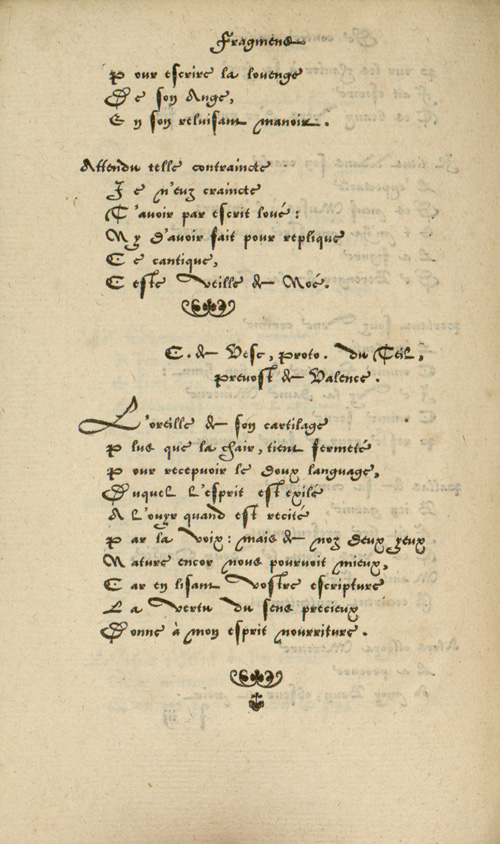 Fragmens
Pour escrire la louenge
De son Ange,
En son reluisant manoir.
Attendu telle contraincte
Je n'euz craincte
T'avoir par escrit loué :
Ny d'avoir fait pour replique
Ce cantique,
Ceste veille de Noé.
C. de Vesc, proto. du Teil,
prevost de Valence.
L'oreille de son cartilage
Plus que la chair, tient fermeté
Pour recepvoir le doux language,
Duquel l'esprit est exilé
A l'ouyr quand est recité
Par la voix : mais de noz deux yeux
Nature encor nous pourvoit mieux,
Car en lisant vostre escripture
La vertu du sens precieux
Donne à mon esprit nourriture.